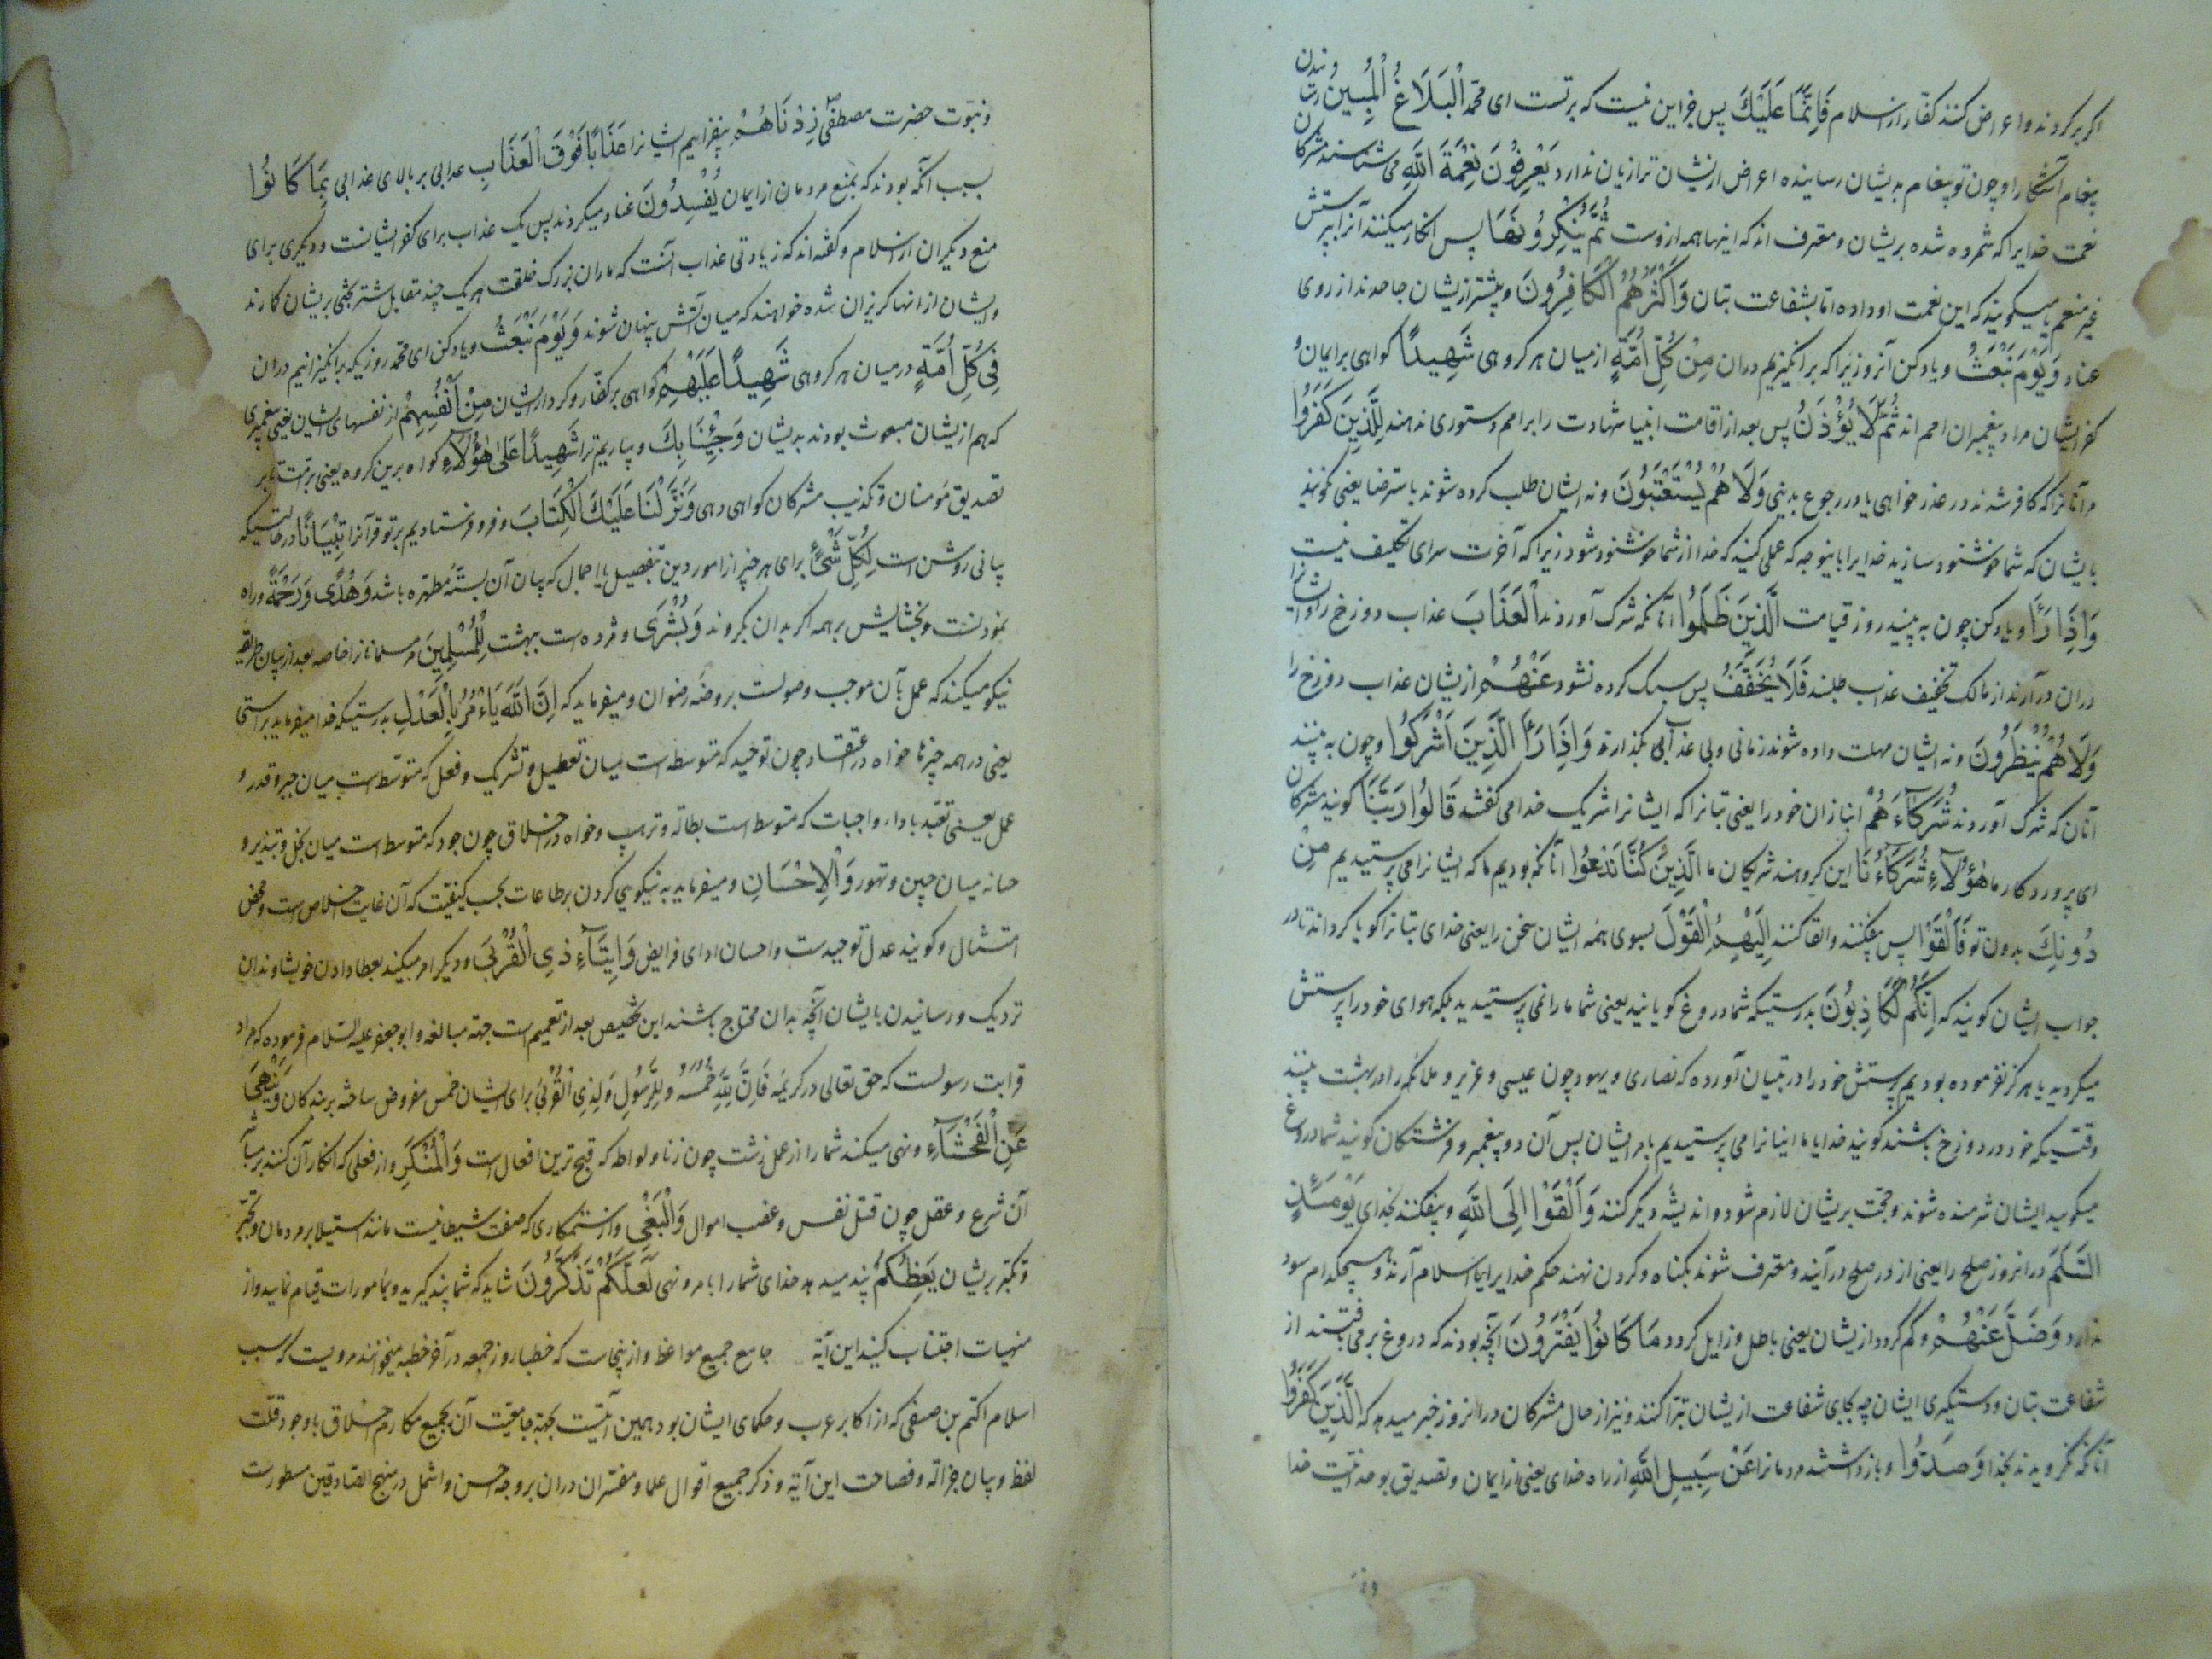 اگر برگردند و اعراض کنند کفار از اسلام فَاِنَّمَا عَلَيْكَ پس جز این نیست که بر تست ای محمد الْبَلَاغُ الْمُبِينُ رسانیدن
پیغام آشکارا و چون تو پیغام بدیشان رساینده اعراض ازیشان ترا زیان ندارد يَعْرِفُونَ نِعْمَةَ اللّٰهِ می شناسند مشرکان
نعمت خدایرا که شمرده شده بریشان و معترف اند که اینها همه ازوست ثُمَّ يُنْكِرُونَهَا پس انکار میکنند آنرا بپرستش
غیر منعم یا میکویند که این نعمت او داده اما بشفاعت بتان وَاَكْثَرُهُمُ الْكَافِرُونَ و بیشتر ازیشان جاحدند از روی
عناد وَيَوْمَ نَبْعَثُ و یاد کن آنروزیرا که برانکیزیم دران مِنْ كُلِّ اُمَّةٍ از میان هر کروهی شَهِيدًا کواهی بر ایمان و
کفر ایشان مراد پیغمبران امم اند ثُمَّ لَا يُؤْذَنُ پس بعد از اقامت انبیا شهادت را بر امم دستوری ندهند لِلَّذِينَ كَفَرُوا
مر آنانرا که کافر شدند در عذر خواهی یا در رجوع بدنیی وَلَا هُمْ يُسْتَعْتَبُونَ و نه ایشان طلب کرده شوند باسترضا یعنی نکویند
بایشان که شما خوشنود سازید خدایرا باینوجه که عملی کنید که خدا از شما خوشنود شود زیرا که آخرت سرای تکلیف نیست
وَاِذَا رَاَ و یاد کن چون به بینند روز قیامت الَّذِينَ ظَلَمُوا آنانکه شرک آوردند الْعَذَابَ عذاب دوزخ را و ایشانرا
دران درآرند از مالک تخفیف عذاب طلبند فَلَا يُخَفَّفُ پس سبک کرده نشود عَنْهُمْ ازیشان عذاب دوزخ را
وَلَا هُمْ يُنْظَرُونَ و نه ایشان مهلت داده شوند زمانی و بی عذابی نکذارند وَاِذَا رَاَ الَّذِينَ اَشْرَكُوا و چون به بینند
آنان که شرک آوردند شُرَكَآءَهُمْ انبازان خود را یعنی بتانرا که ایشانرا شریک خدا می کفتند قَالُوا رَبَّنَا کویند مشرکان
ای پروردکار ما هٰؤُلَآءِ شُرَكَآؤُنَا این کروهند شریکان ما الَّذِينَ كُنَّا نَدْعُوا آنانکه بودیم ما که ایشانرا می پرستیدیم مِنْ
دُونِكَ بدون تو فَاَلْقَوْا پس بیفکنند و القا کنند اِلَيْهِمُ الْقَوْلَ بسوی همه ایشان سخن را یعنی خدای بتانرا کویا کرداند تا در
جواب ایشان کویند که اِنَّكُمْ لَكَاذِبُونَ بدرستیکه شما دروغ کویانید یعنی شما ما را نمی پرستیدید بلکه هوای خود را پرستش
میکردید یا هرکز نفرموده بودیم پرستش خود را در تبیان آورده که نصاری و یهود چون عیسی و عزیر و ملائکه را در بهشت بینند
وقتیکه خود در دوزخ باشند کویند خدایا ما اینانرا می پرستیدیم بامر ایشان پس آن دو پیغمبر و فرشتکان کویند شما دروغ
میکویید ایشان شرمنده شوند و حجت بریشان لازم شود و اندیشه دیکر کنند وَاَلْقَوْا اِلَى اللّٰهِ و بیفکنند بخدای يَوْمَئِذٍ
السَّلَمَ در انروز صلح را یعنی از در صلح درآیند و معترف شوند بکناه و کردن نهند حکم خدایرا یا اسلام آرند و هیچکدام سود
ندارد وَضَلَّ عَنْهُمْ و کم کردد ازیشان یعنی باطل و زایل کردد مَا كَانُوا يَفْتَرُونَ آنچه بودند که دروغ برمی بافتند از
شفاعت بتان و دستکیری ایشان چه بجای شفاعت ازیشان تبرا کنند و نیز از حال مشرکان در انروز خبر میدهد که الَّذِينَ كَفَرُوا
آنانکه نکرویدند بخدا وَصَدُّوا و باز داشتند مردمانرا عَنْ سَبِيلِ اللّٰهِ از راه خدای یعنی از ایمان و تصدیق بوحدانیت خدا
و نبوت حضرت مصطفی زِدْنَاهُمْ بیفزاییم ایشانرا عَذَابًا فَوْقَ الْعَذَابِ عذابی بر بالای عذابی بِمَا كَانُوا
بسبب آنکه بودند که بمنع مردمان از ایمان يُفْسِدُونَ عناد میکردند پس یک عذاب برای کفر ایشانست و دیکری برای
منع دیکران از اسلام و کفته اند که زیادتی عذاب آنست که ماران بزرک خلقت هر یک چند مقابل شتر بختی بریشان کمارند
و ایشان از انها کریزان شده خواهند که میان آتش پنهان شوند وَيَوْمَ نَبْعَثُ و یاد کن ای محمد روزیکه برانکیزانیم دران
فِي كُلِّ اُمَّةٍ در میان هر کروهی شَهِيدًا عَلَيْهِمْ کواهی بر کفار و کردار ایشان مِنْ اَنْفُسِهِمْ از نفسهای ایشان یعنی پیغمبری
که هم ازیشان مبعوث بودند بدیشان وَجِئْنَا بِكَ و بیاریم ترا شَهِيدًا عَلٰى هٰؤُلَآءِ کواه برین کروه یعنی بر امت تا بر
تصدیق مؤمنان و تکذیب مشرکان کواهی دهی وَنَزَّلْنَا عَلَيْكَ الْكِتَابَ و فرو فرستادیم بر تو قرآنرا تِبْيَانًا در حالتیکه
بیانی روشن است لِكُلِّ شَيْءٍ برای هر چیز از امور دین بتفصیل یا اجمال که بیان آن بسنّه مطهّره باشد وَهُدًى وَرَحْمَةً و راه
نمودنست و بخشایش بر همه اکر بدان بکروند وَبُشْرٰى و مژده است ببهشت لِلْمُسْلِمِينَ مر مسلمانانرا خاصه بعد از بیان طریقه
نیکو میکند که عمل بآن موجب وصولست بروضه رضوان و میفرماید که اِنَّ اللّٰهَ يَاْمُرُ بِالْعَدْلِ بدرستیکه خدا میفرماید براستی
یعنی در همه چیزها خواه در اعتقاد چون توحید که متوسطه است میان تعطیل و تشریک و فعل که متوسط است میان جبر و قدر و
عمل یعنی تعبد بادا و واجبات که متوسط است بطاله و ترهب و خواه در اخلاق چون جود که متوسط است میان بخل و تبذیر و
میان جبن و تهور وَالْاِحْسَانِ و میفرماید به نیکویی کردن بر طاعات بحسب کیفیت که آن غایت اخلاص است و محض
امتثال و کویند عدل توحیدست و احسان ادای فرایض وَاِيتَآءِ ذِي الْقُرْبٰى و دیکر امر میکند بعطا دادن خویشاوندان
نزدیک و رسانیدن بایشان آنچه بدان محتاج باشند این تخصیص بعد از تعمیم است جهة مبالغه و ابو جعفر علیه السلام فرموده که مراد
قرابت رسولست که حق تعالی در کریمه فَاِنَّ لِلّٰهِ خُمُسَهُ وَلِلرَّسُولِ وَلِذِي الْقُرْبٰى برای ایشان خمس مفروض ساخته بر بندکان وَيَنْهٰى
عَنِ الْفَحْشَآءِ و نهی میکند شما را از عمل زشت چون زنا و لواطه که قبیح ترین افعال است وَالْمُنْكَرِ و از فعلی که انکار آن کنند
آن شرع و عقل چون قتل نفس و غصب اموال وَالْبَغْيِ و از ستمکاری که صفت شیطانیست مانند استیلا بر مردمان و تجبر
و تکبر بریشان يَعِظُكُمْ پند میدهد خدای شما را بامر و نهی لَعَلَّكُمْ تَذَكَّرُونَ شاید که شما پند کیرید و بمامورات قیام نمایید و از
منهیات اجتناب کنید این آیة جامع جمیع مواعظ و ازینجاست که خطبا روز جمعه در آخر خطبه میخوانند مرویست که سبب
اسلام اکثم بن صیفی که از اکابر عرب و حکمای ایشان بود همین آیتست بجهة جامعیت آن بجمیع مکارم اخلاق با وجود قلت
لفظ و بیان جزاله و فصاحت این آیة و ذکر جمیع اقوال علما و مفسران دران بر وجه احسن و اشمل در منهج الصادقین مسطورست